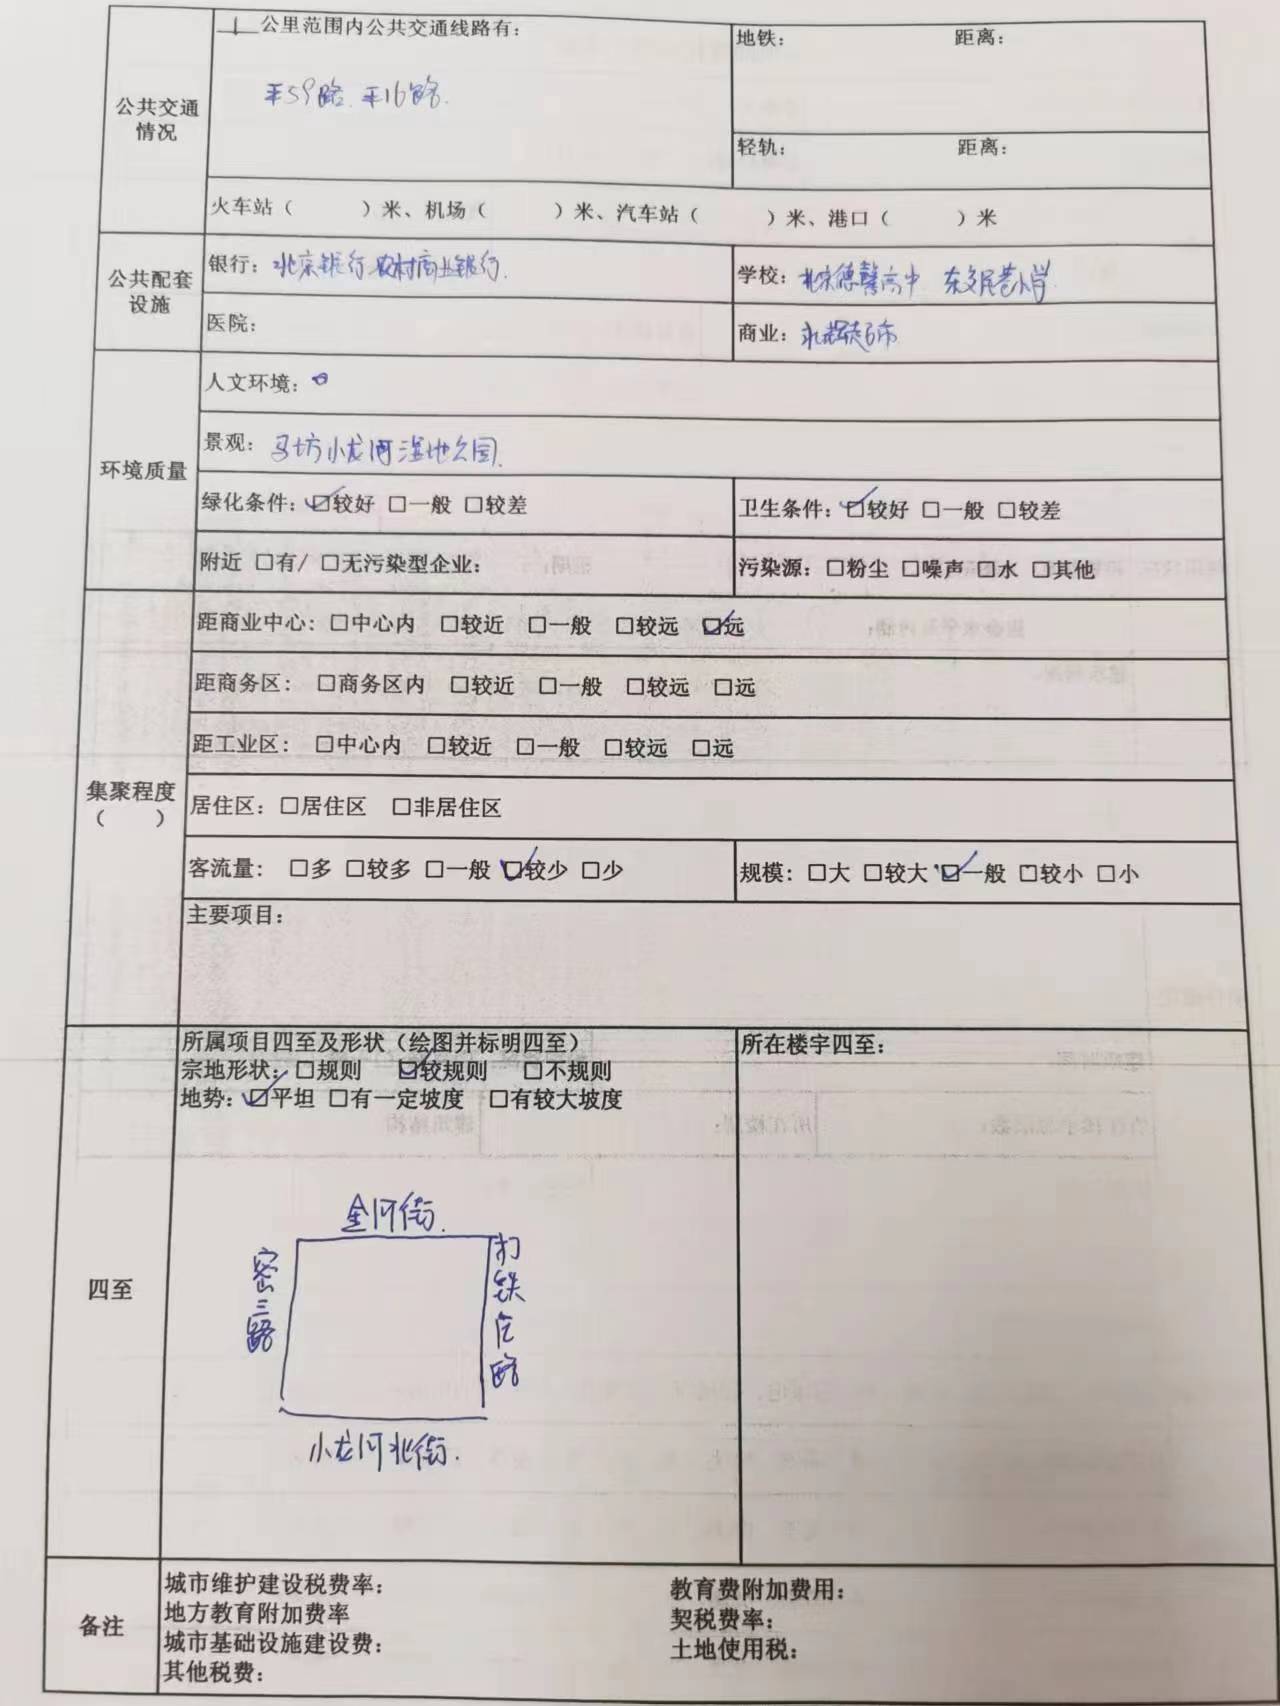 公共交通情况
1 公里范围内公共交通线路有：
平59路、平16路.
地铁： 距离：
轻轨： 距离：
火车站（ ）米、机场（ ）米、汽车站（ ）米、港口（ ）米
公共配套设施
银行：北京银行 农村商业银行.
学校：北京德馨高中 东交民巷小学.
医院：
商业：永辉超市
环境质量
人文环境：
景观：马坊小龙河湿地公园.
绿化条件：☑较好 □一般 □较差
卫生条件：☑较好 □一般 □较差
附近 □有/ □无污染型企业：
污染源：□粉尘 □噪声 □水 □其他
集聚程度（ ）
距商业中心：□中心内 □较近 □一般 □较远 ☑远
距商务区： □商务区内 □较近 □一般 □较远 □远
距工业区： □中心内 □较近 □一般 □较远 □远
居住区：□居住区 □非居住区
客流量： □多 □较多 □一般 ☑较少 □少
规模：□大 □较大 ☑一般 □较小 □小
主要项目：
四至
所属项目四至及形状（绘图并标明四至）
宗地形状：□规则 ☑较规则 □不规则
地势：☑平坦 □有一定坡度 □有较大坡度
所在楼宇四至：
金河街.
密三路
打铁庄路
小龙河北街.
备注
城市维护建设税费率： 教育费附加费用：
地方教育附加费率 契税费率：
城市基础设施建设费： 土地使用税：
其他税费：